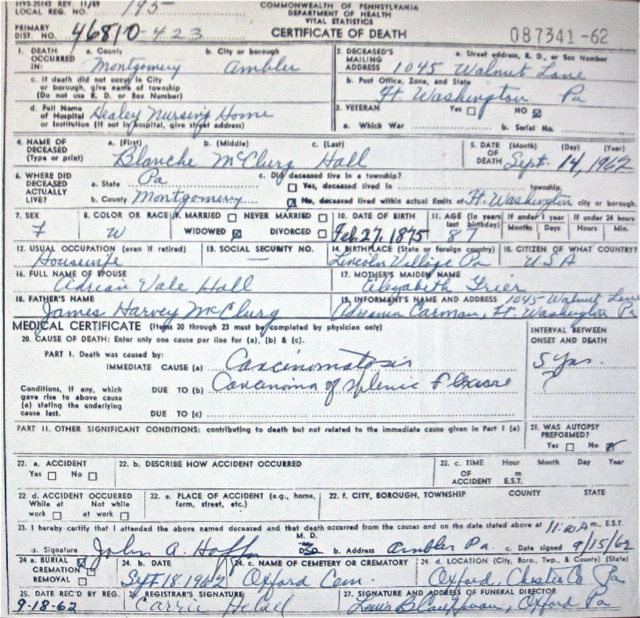 HVS-20143 REV. 11/49 195
LOCAL REG. NO.
COMMONWEALTH OF PENNSYLVANIA
DEPARTMENT OF HEALTH
VITAL STATISTICS
PRIMARY DIST. NO. 46810-423 CERTIFICATE OF DEATH 087341-62
1. DEATH OCCURRED IN a. County Montgomery b. City or borough Ambler
c. If death did not occur in City or borough, give name of township (Do not use R. D. or Box Number)
d. Full Name of Hospital or Institution (If not in hospital, give street address) Healey Nursing Home
2. DECEASED'S MAILING ADDRESS a. Street address, R. D., or Box Number 1045 Walnut Lane
b. Post Office, Zone, and State Ft Washington Pa
3. VETERAN Yes No
a. Which War b. Serial No.
4. NAME OF DECEASED (Type or print) a. (First) b. (Middle) c. (Last) Blanche McClurg Hall
5. DATE OF DEATH (Month) (Day) (Year) Sept. 14, 1962
6. WHERE DID DECEASED ACTUALLY LIVE? a. State Pa b. County Montgomery
c. Did deceased live in a township?
Yes, deceased lived in township.
No, deceased lived within actual limits of Ft. Washington city or borough.
7. SEX F 8. COLOR OR RACE W 9. MARRIED NEVER MARRIED WIDOWED DIVORCED
10. DATE OF BIRTH Feb 27, 1875 11. AGE (In years last birthday) 87 If under 1 year Months Days If under 24 hours Hours Min.
12. USUAL OCCUPATION (even if retired) Housewife 13. SOCIAL SECURITY NO. 14. BIRTHPLACE (State or foreign country) Lincoln Village Pa 15. CITIZEN OF WHAT COUNTRY? USA
16. FULL NAME OF SPOUSE Adrian Vale Hall 17. MOTHER'S MAIDEN NAME Elizabeth Grier
18. FATHER'S NAME James Harvey McClurg 19. INFORMANT'S NAME AND ADDRESS 1045 Walnut Lane Carman, Ft. Washington Pa
MEDICAL CERTIFICATE (Items 20 through 23 must be completed by physician only)
20. CAUSE OF DEATH: Enter only one cause per line for (a), (b) & (c).
INTERVAL BETWEEN ONSET AND DEATH
PART I. Death was caused by:
IMMEDIATE CAUSE (a) Carcinomatosis 5 yrs.
Conditions, if any, which gave rise to above cause (a) stating the underlying cause last.
DUE TO (b) Carcinoma of splenic flexure ?
DUE TO (c)
PART II. OTHER SIGNIFICANT CONDITIONS: contributing to death but not related to the immediate cause given in Part I (a)
21. WAS AUTOPSY PREFORMED? Yes No
22. a. ACCIDENT Yes No 22. b. DESCRIBE HOW ACCIDENT OCCURRED 22. c. TIME OF ACCIDENT Hour Month Day Year m E.S.T.
22. d. ACCIDENT OCCURRED While at work Not while at work 22. e. PLACE OF ACCIDENT (e.g., home, farm, street, etc.) 22. f. CITY, BOROUGH, TOWNSHIP COUNTY STATE
23. I hereby certify that I attended the above named deceased and that death occurred from the causes and on the date stated above at 11:00 A m., E.S.T.
a. Signature John A. M. D. b. Address Ambler Pa. c. Date signed 9/15/62
24 a. BURIAL CREMATION REMOVAL 24. b. DATE Sept. 18 1962 24. c. NAME OF CEMETERY OR CREMATORY Oxford Cem. 24. d. LOCATION (City, Boro, Twp., & County) (State) Oxford, Chester Co Pa
25. DATE REC'D BY REG. 9-18-62 26. REGISTRAR'S SIGNATURE Carrie 27. SIGNATURE AND ADDRESS OF FUNERAL DIRECTOR Oxford Pa